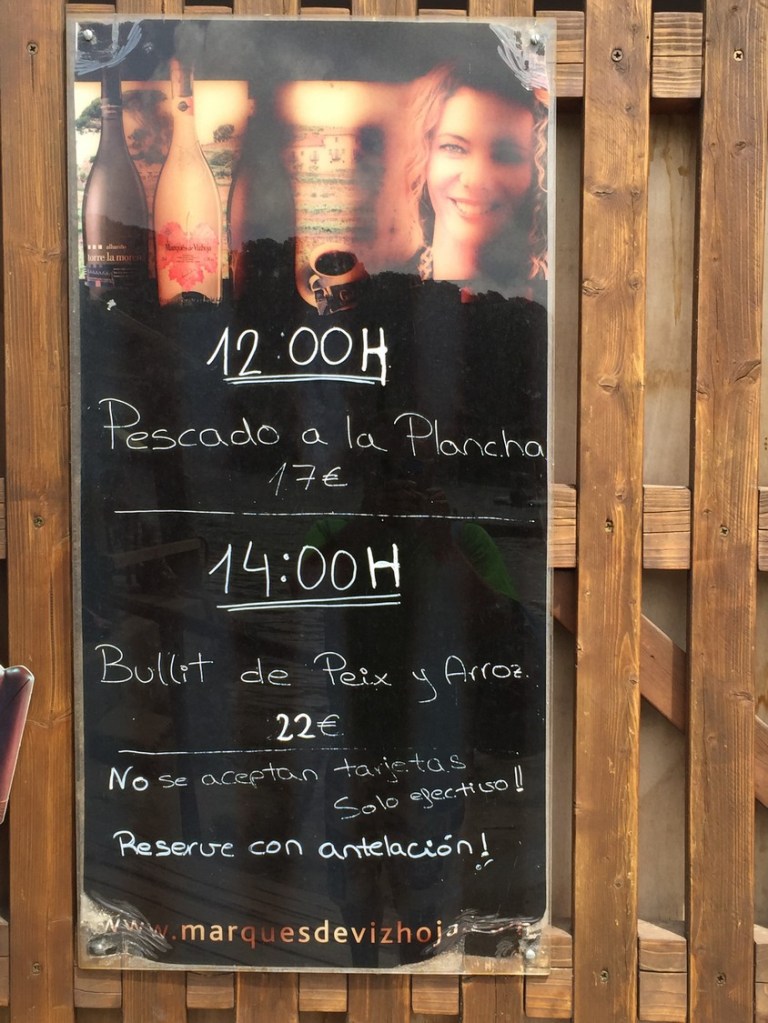 albariño
torre la moreira
Marqués de Vizhoja
12:00H
Pescado a la Plancha
17€
14:00H
Bullit de Peix y Arroz.
22€
No se aceptan tarjetas
Solo efectivo!!
Reserve con antelación!
www.marquesdevizhoja